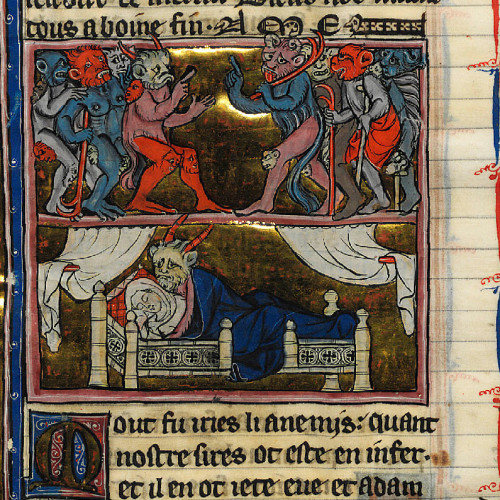 tous a boine fin. A M E
Mout fu iries li anemijs: quant
nostre sires ot este en infer.
et il en ot iete eue et adam